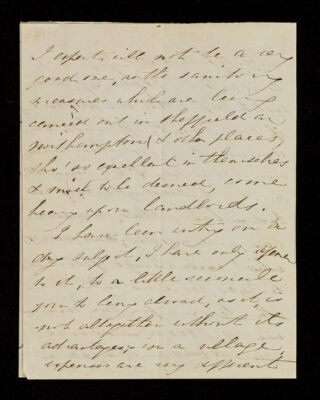 I expect will not be a very
good one, as the sanitary
measures which are being
carried out in Sheffield an
Northampton (& other places)
tho' so excellent in themselves
& much to be desired, come
heavy upon landlords.
I have been writing on a
dry subject, I have only
to it, to a little reconcile
you to being abroad, as it is
not altogether without its
advantages; in a village,
expenses are very different